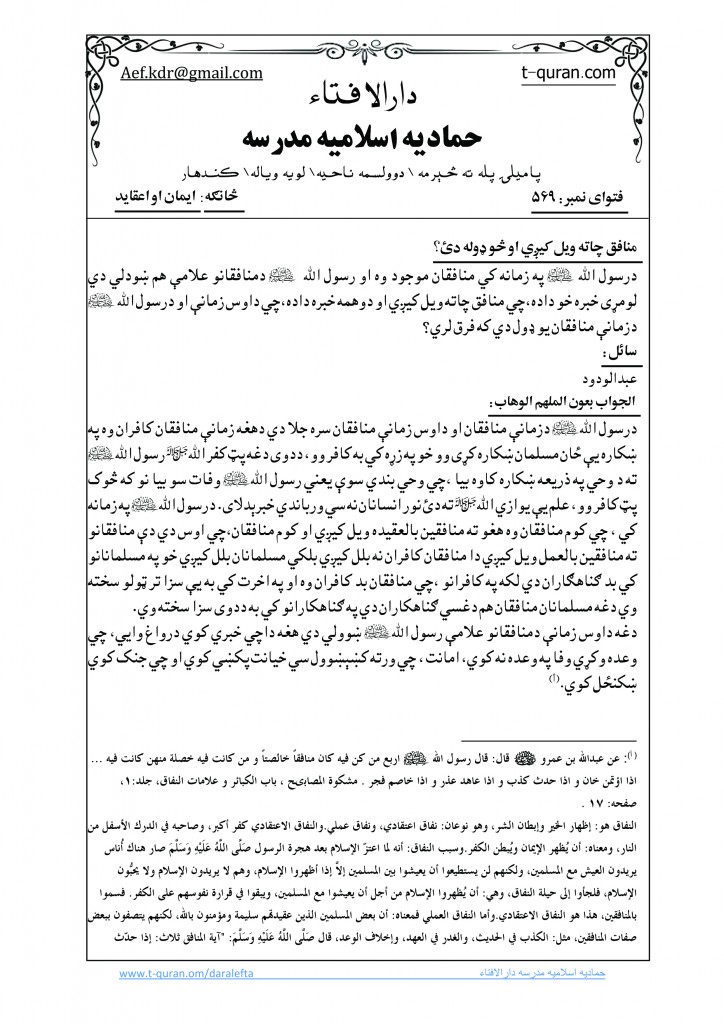 Aef.kdr@gmail.com
t-quran.com
دارالافتاء
حمادیه اسلامیه مدرسه
پامیلۍ پله ته څېرمه \ دوولسمه ناحیه\ لویه ویاله\ کندهار
فتوای نمبر: ۵۶۹
څانګه: ایمان او اعقاید
منافق چاته ویل کیږي او څو ډوله دئ؟
درسول الله ﷺ په زمانه کي منافقان موجود وه او رسول الله ﷺ دمنافقانو علامې هم ښودلي دي
لومړی خبره خو داده، چي منافق چاته ویل کیږي او دوهمه خبره داده، چي داوس زمانې او درسول الله ﷺ
دزمانې منافقان یو ډول دي که فرق لري؟
سائل:
عبدالودود
الجواب بعون الملهم الوهاب:
درسول الله ﷺ دزمانې منافقان او داوس زمانې منافقان سره جلا دي دهغه زمانې منافقان کافران وه په
ښکاره یې ځان مسلمان ښکاره کړی وو خو په زړه کي به کافر وو، ددوی دغه پټ کفر الله ﷻ رسول الله ﷺ
ته د وحي په ذریعه ښکاره کاوه بیا ، چي وحي بندي سوې یعني رسول الله ﷺ وفات سو بیا نو که څوک
پټ کافر وو، علم یې یوازي الله ﷻ ته دئ نور انسانان نه سي ورباندي خبرېدلای. درسول الله ﷺ په زمانه
کي ، چي کوم منافقان وه هغو ته منافقین بالعقیده ویل کیږي او کوم منافقان، چي اوس دي دې منافقانو
ته منافقین بالعمل ویل کیږي دا منافقان کافران نه بلل کیږي بلکي مسلمانان بلل کیږي خو په مسلمانانو
کي بد ګناهګاران دي لکه په کافرانو ، چي منافقان بد کافران وه او په اخرت کي به یې سزا تر ټولو سخته
وي دغه مسلمانان منافقان هم دغسي ګناهکاران دي په ګناهکارانو کي به ددوی سزا سخته وي.
دغه داوس زمانې دمنافقانو علامې رسول الله ﷺ ښوولي دي هغه داچي خبري کوي درواغ وایي، چي
وعده وکړي وفا په وعده نه کوي، امانت ، چي ورته کښېښوول سي خیانت پکښي کوي او چي جنګ کوي
ښکنځل کوي.(أ)
(أ): عن عبدالله بن عمرو قال: قال رسول الله ﷺ اربع من کن فیه کان منافقاً خالصتاً و من کانت فیه خصلة منهن کانت فیه ...
اذا اؤتمن خان و اذا حدث کذب و اذا عاهد عذر و اذا خاصم فجر . مشکوة المصابیح ، باب الکبائر و علامات النفاق، جلد:۱،
صفحه: ۱۷ .
النفاق هو: إظهار الخير وإبطان الشر، وهو نوعان: نفاق اعتقادي، ونفاق عملي.والنفاق الاعتقادي كفر أكبر، وصاحبه في الدرك الأسفل من
النار، ومعناه: أن يُظهر الإيمان ويُبطن الكفر.وسبب النفاق: أنه لما اعتزّ الإسلام بعد هجرة الرسول صَلَّى اللَّهُ عَلَيْهِ وَسَلَّمَ صار هناك أُناس
يريدون العيش مع المسلمين، ولكنهم لن يستطيعوا أن يعيشوا بين المسلمين إلاَّ إذا أظهروا الإسلام، وهم لا يريدون الإسلام ولا يحبُّون
الإسلام، فلجأوا إلى حيلة النفاق، وهي: أن يُظهروا الإسلام من أجل أن يعيشوا مع المسلمين، ويبقوا في قرارة نفوسهم على الكفر. فسموا
بالمنافقين، هذا هو النفاق الاعتقادي.وأما النفاق العملي فمعناه: أن بعض المسلمين الذين عقيدتهم سليمة ومؤمنون بالله، لكنهم يتصفون ببعض
صفات المنافقين، مثل: الكذب في الحديث، والغدر في العهد، وإخلاف الوعد، قال صَلَّى اللَّهُ عَلَيْهِ وَسَلَّمَ: "آية المنافق ثلاث: إذا حدّث
حمادیه اسلامیه مدرسه دارالافتاء
www.t-quran.om/daralefta